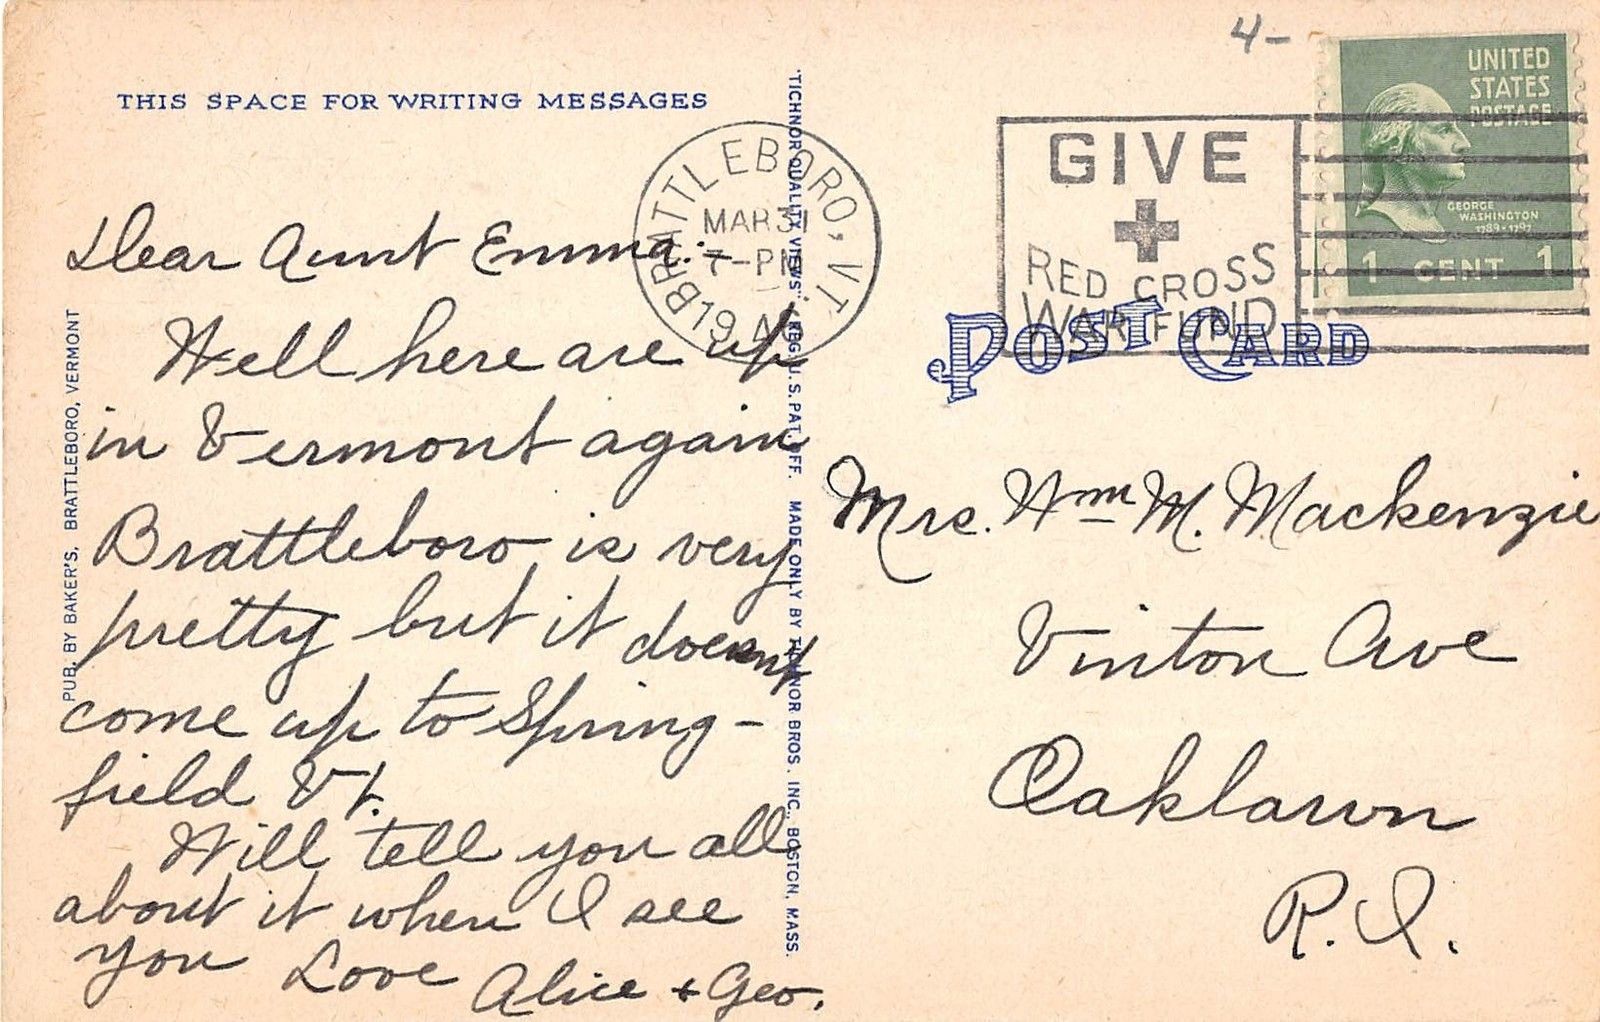 4-
THIS SPACE FOR WRITING MESSAGES
BRATTLEBORO, VT.
MAR 31
7-PM
19
GIVE
RED CROSS
WAR FUND
UNITED
STATES
POSTAGE
GEORGE
WASHINGTON
1789-1797
1 CENT 1
POST CARD
Dear Aunt Emma:-
Well here are up
in Vermont again
Brattleboro is very
pretty but it doesnt
come up to Spring-
field Vt.
Will tell you all
about it when I see
you Love Alice + Geo.
PUB. BY BAKER'S, BRATTLEBORO, VERMONT
"TICHNOR QUALITY VIEWS," REG. U.S. PAT. OFF. MADE ONLY BY TICHNOR BROS. INC., BOSTON, MASS.
Mrs. Wm M. Mackenzie
Vinton Ave
Oaklawn
R.I.